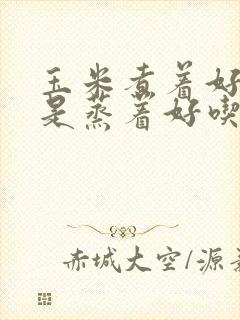 玉米煮着好
是蒸着好吃
赤城大空/源